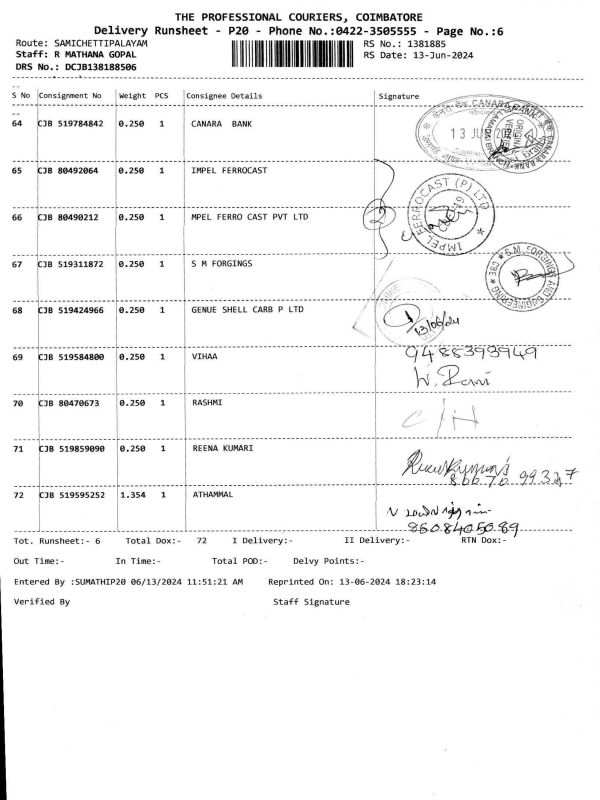 THE PROFESSIONAL COURIERS, COIMBATORE
Delivery Runsheet - P20 - Phone No.:0422-3505555 - Page No.:6
Route: SAMICHETTIPALAYAM RS No.: 1381885
Staff: R MATHANA GOPAL RS Date: 13-Jun-2024
DRS No.: DCJB138188506
S No Consignment No Weight PCS Consignee Details Signature
64 CJB 519784842 0.250 1 CANARA BANK
CANARA BANK
13 JUN 2024
65 CJB 80492064 0.250 1 IMPEL FERROCAST
IMPEL FERROCAST (P) LTD
66 CJB 80490212 0.250 1 MPEL FERRO CAST PVT LTD
2
67 CJB 519311872 0.250 1 S M FORGINGS
S.M. FORGINGS AND ENGINEERING * CBE *
68 CJB 519424966 0.250 1 GENUE SHELL CARB P LTD
1
13/06/24
69 CJB 519584800 0.250 1 VIHAA 9488393949
W. Rani
70 CJB 80470673 0.250 1 RASHMI C/H
71 CJB 519859090 0.250 1 REENA KUMARI
72 CJB 519595252 1.354 1 ATHAMMAL
8608405089
Tot. Runsheet:- 6 Total Dox:- 72 I Delivery:- II Delivery:- RTN Dox:-
Out Time:- In Time:- Total POD:- Delvy Points:-
Entered By :SUMATHIP20 06/13/2024 11:51:21 AM Reprinted On: 13-06-2024 18:23:14
Verified By Staff Signature